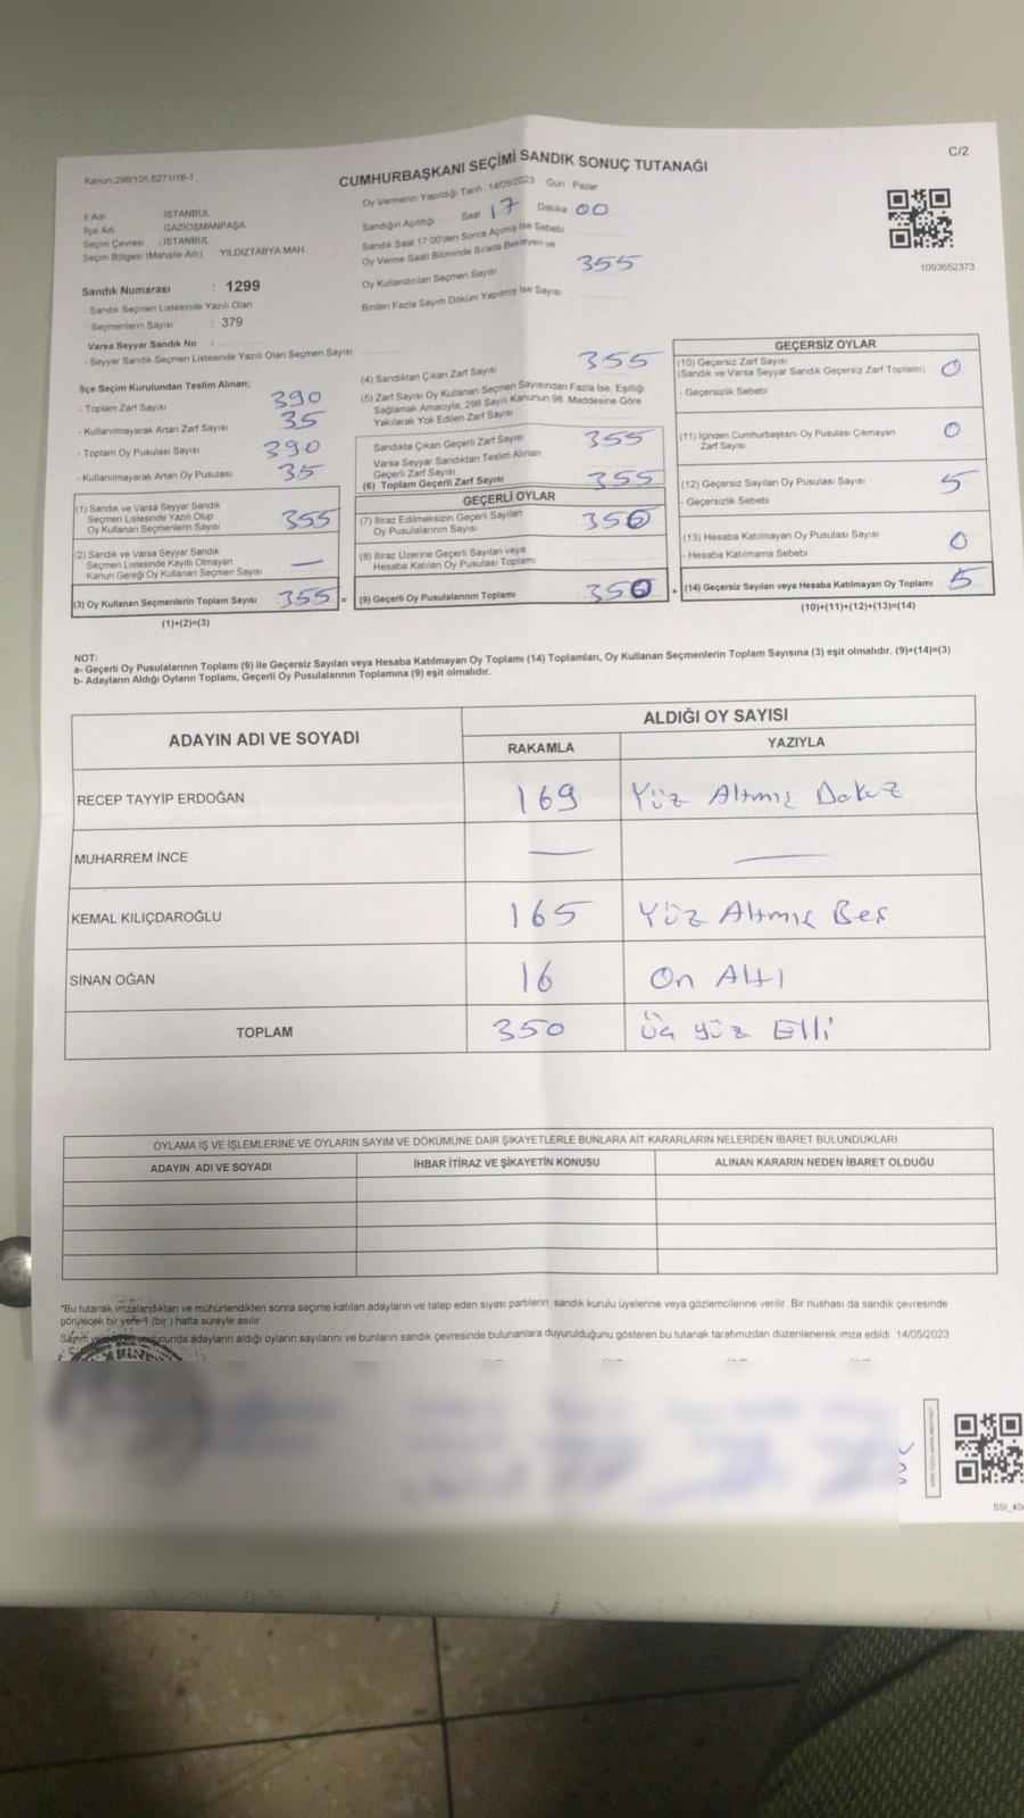 Kanun:298/105,6271/18-1
C/2
CUMHURBAŞKANI SEÇİMİ SANDIK SONUÇ TUTANAĞI
Oy Vermenin Yapıldığı Tarih : 14/05/2023 Gün : Pazar
İl Adı : İSTANBUL
İlçe Adı : GAZİOSMANPAŞA
Seçim Çevresi : İSTANBUL
Seçim Bölgesi (Mahalle Adı) : YILDIZTABYA MAH.
Sandığın Açıldığı Saat 17 Dakika 00
Sanda Saat 17:00'den Sonra Açılmış İse Sebebi
Oy Verme Saati Bitiminde Sırada Bekleyen ve
Oy Kullandırılan Seçmen Sayısı 355
Birden Fazla Sayım Döküm Yapılmış İse Sayısı
1093652373
Sandık Numarası : 1299
Sandık Seçmen Listesinde Yazılı Olan
Seçmenlerin Sayısı : 379
Varsa Seyyar Sandık No :
- Seyyar Sandık Seçmen Listesinde Yazılı Olan Seçmen Sayısı
İlçe Seçim Kurulundan Teslim Alınan;
- Toplam Zarf Sayısı 390
- Kullanılmayarak Artan Zarf Sayısı 35
- Toplam Oy Pusulası Sayısı 390
- Kullanılmayarak Artan Oy Pusulası 35
(1) Sandık ve Varsa Seyyar Sandık
Seçmen Listesinde Yazılı Olup
Oy Kullanan Seçmenlerin Sayısı 355
(2) Sandık ve Varsa Seyyar Sandık
Seçmen Listesinde Kayıtlı Olmayan
Kanun Gereği Oy Kullanan Seçmen Sayısı —
(3) Oy Kullanan Seçmenlerin Toplam Sayısı 355 =
(1)+(2)=(3)
(4) Sandıktan Çıkan Zarf Sayısı 355
(5) Zarf Sayısı Oy Kullanan Seçmen Sayısından Fazla İse, Eşitliği
Sağlamak Amacıyla, 298 Sayılı Kanunun 98. Maddesine Göre
Yakılarak Yok Edilen Zarf Sayısı
Sandıkta Çıkan Geçerli Zarf Sayısı 355
Varsa Seyyar Sandıktan Teslim Alınan
Geçerli Zarf Sayısı
(6) Toplam Geçerli Zarf Sayısı 355
GEÇERLİ OYLAR
(7) İtiraz Edilmeksizin Geçerli Sayılan
Oy Pusulalarının Sayısı 350
(8) İtiraz Üzerine Geçerli Sayılan veya
Hesaba Katılan Oy Pusulası Toplamı
(9) Geçerli Oy Pusulalarının Toplamı 350 +
GEÇERSİZ OYLAR
(10) Geçersiz Zarf Sayısı
(Sandık ve Varsa Seyyar Sandık Geçersiz Zarf Toplamı) 0
- Geçersizlik Sebebi
(11) İçinden Cumhurbaşkanı Oy Pusulası Çıkmayan
Zarf Sayısı 0
(12) Geçersiz Sayılan Oy Pusulası Sayısı 5
- Geçersizlik Sebebi
(13) Hesaba Katılmayan Oy Pusulası Sayısı 0
- Hesaba Katılmama Sebebi
(14) Geçersiz Sayılan veya Hesaba Katılmayan Oy Toplamı 5
(10)+(11)+(12)+(13)=(14)
NOT:
a- Geçerli Oy Pusulalarının Toplamı (9) ile Geçersiz Sayılan veya Hesaba Katılmayan Oy Toplamı (14) Toplamları, Oy Kullanan Seçmenlerin Toplam Sayısına (3) eşit olmalıdır. (9)+(14)=(3)
b- Adayların Aldığı Oyların Toplamı, Geçerli Oy Pusulalarının Toplamına (9) eşit olmalıdır.
ADAYIN ADI VE SOYADI
ALDIĞI OY SAYISI
RAKAMLA YAZIYLA
RECEP TAYYİP ERDOĞAN 169 Yüz Altmış Dokuz
MUHARREM İNCE — —
KEMAL KILIÇDAROĞLU 165 Yüz Altmış Beş
SİNAN OĞAN 16 On Altı
TOPLAM 350 Üç yüz Elli
OYLAMA İŞ VE İŞLEMLERİNE VE OYLARIN SAYIM VE DÖKÜMÜNE DAİR ŞİKAYETLERLE BUNLARA AİT KARARLARIN NELERDEN İBARET BULUNDUKLARI
ADAYIN ADI VE SOYADI İHBAR İTİRAZ VE ŞİKAYETİN KONUSU ALINAN KARARIN NEDEN İBARET OLDUĞU
*Bu tutanak imzalandıktan ve mühürlendikten sonra seçime katılan adayların ve talep eden siyasi partilerin sandık kurulu üyelerine veya gözlemcilerine verilir. Bir nüshası da sandık çevresinde
görülecek bir yere 1 (bir) hafta süreyle asılır.
Sayım adayların aldığı oyların sayılarını ve bunların sandık çevresinde bulunanlara duyurulduğunu gösteren bu tutanak tarafımızdan düzenlenerek imza edildi. 14/05/2023